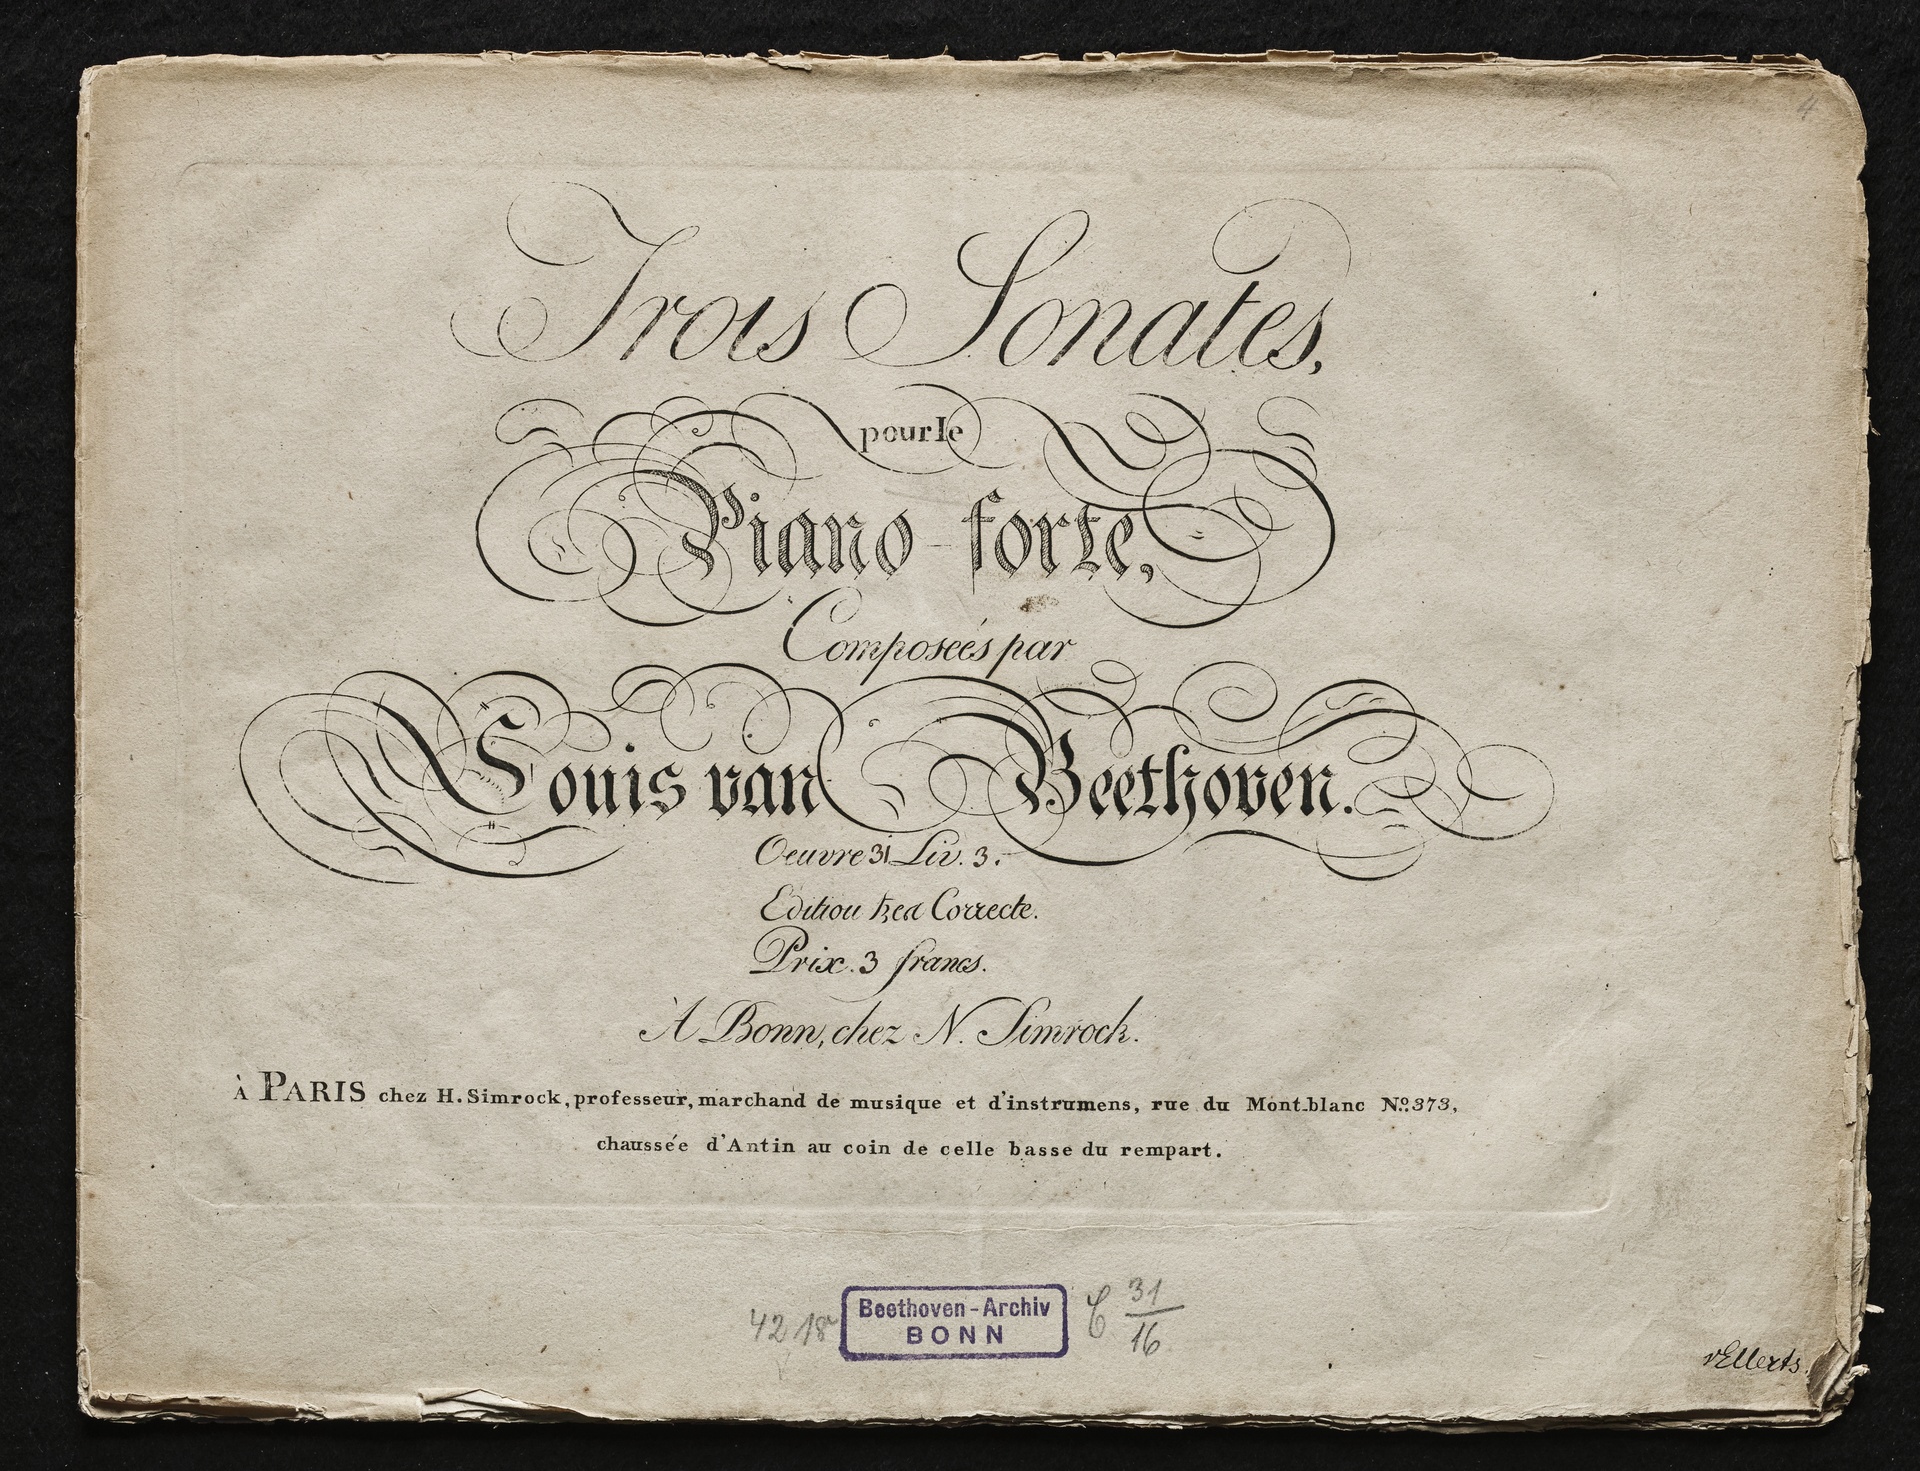 4
Trois Sonates,
pour le
Piano-forte,
Composées par
Louis van Beethoven.
Oeuvre 31 Liv. 3.
Edition tres Correcte.
Prix. 3 francs.
À Bonn, chez N. Simrock.
À PARIS chez H. Simrock, professeur, marchand de musique et d'instrumens, rue du Mont-blanc No. 373,
chaussée d'Antin au coin de celle basse du rempart.
Beethoven-Archiv
BONN
C 31/16
vEllerts.